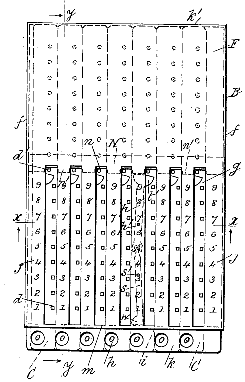 y k'
E
B
f f
n N n'
d g
9 9 9 9 9 9 9
8 8 8 8 8 8 8
7 7 7 7 7 7 7
x 6 6 6 6 6 6 6 x
5 5 5 5 5 5 5
4 4 4 4 4 4 4
3 3 3 3 3 3 3
d 2 2 2 2 2 2 2
1 1 1 1 1 1 1
C y m h i k C